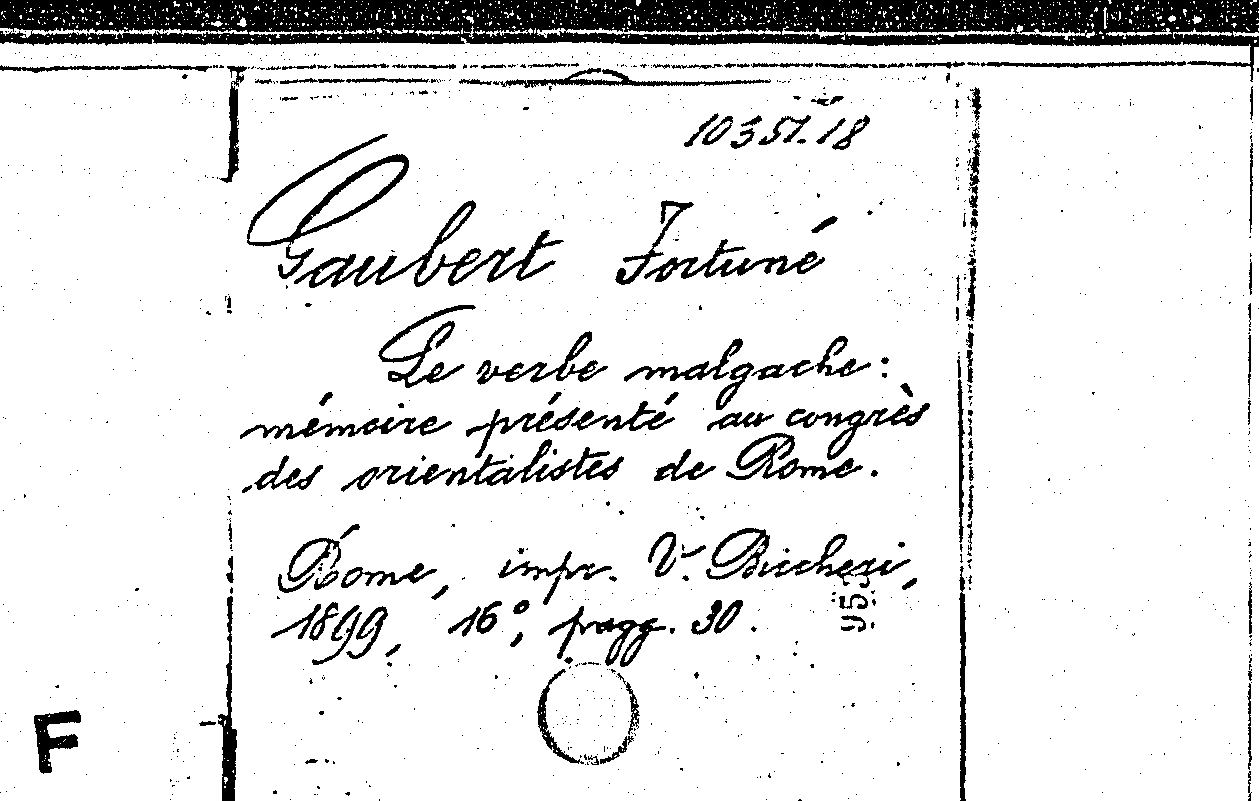 10351.18
Gaubert Fortuné
Le verbe malgache:
mémoire présenté au congrès
des orientalistes de Rome.
Rome, impr. V. Biccheri,
1899, 16°, pagg. 30.
F